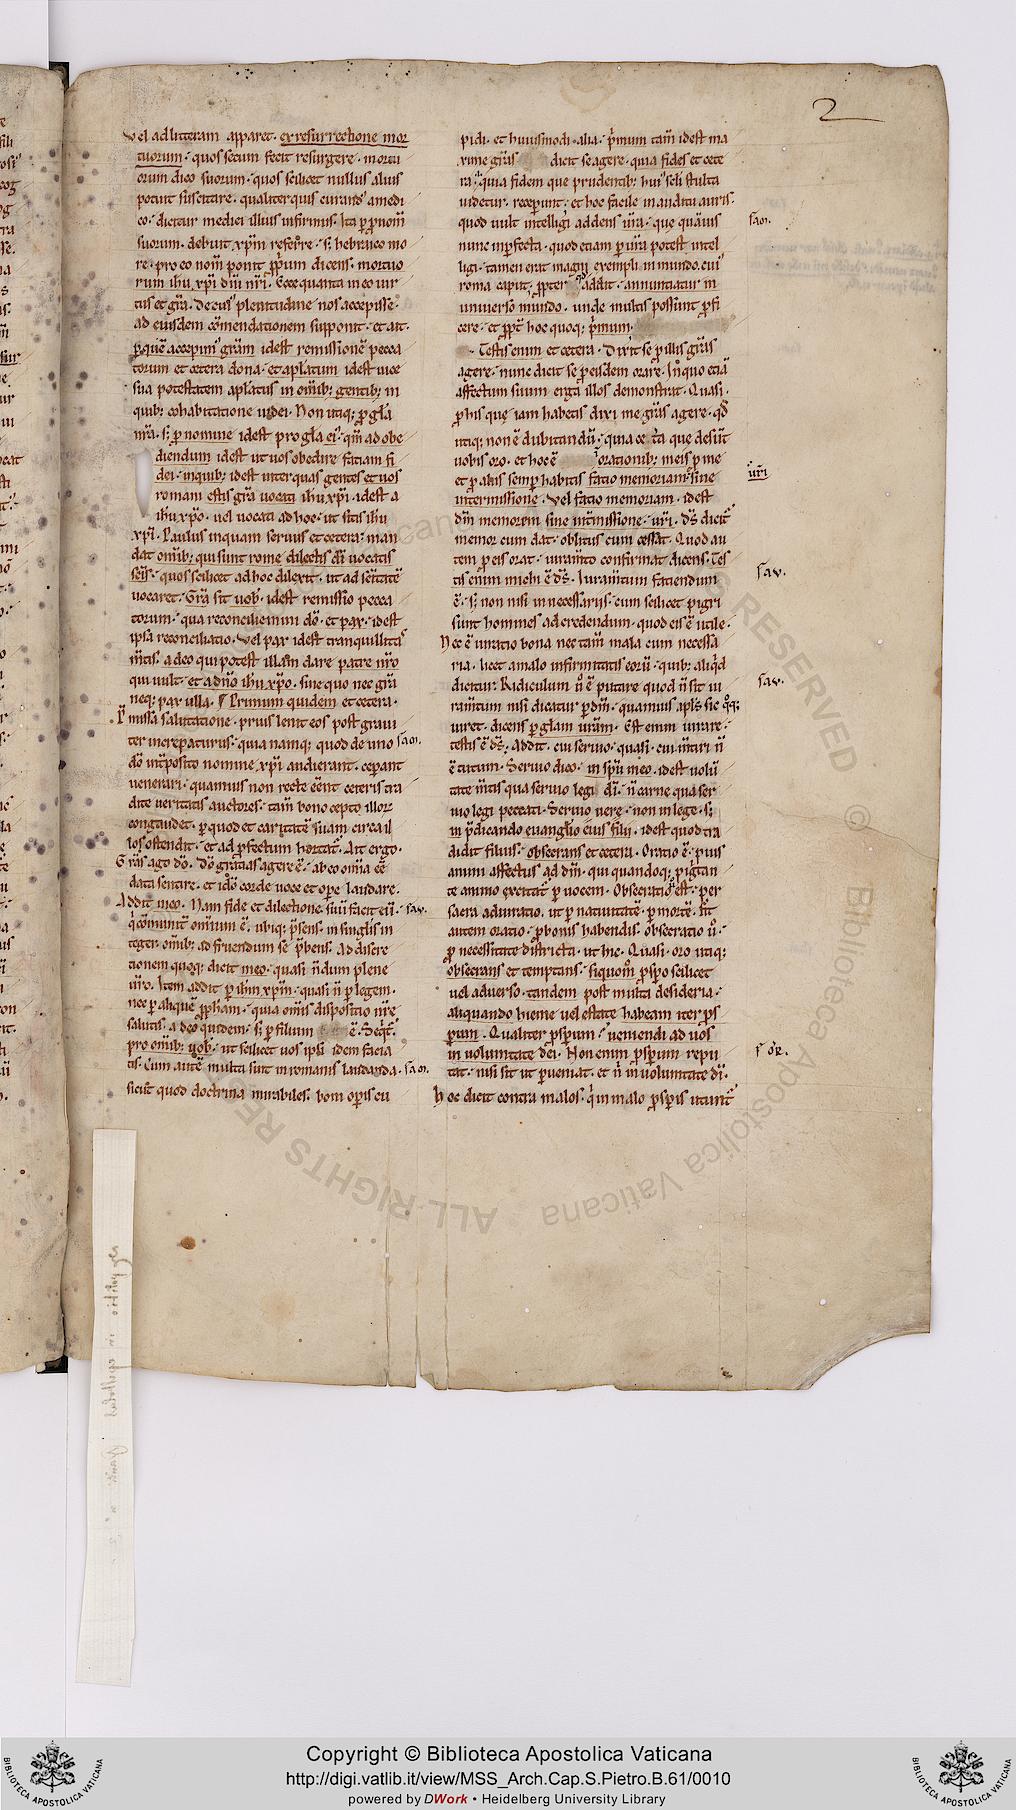 2
vel ad litteram apparet. ex resurrectione mor
tuorum. quos secum fecit resurgere. mortu
orum dico suorum. quos scilicet nullus alius
potuit suscitare. qualiter quis curand' a medi
co. dicitur medici illius infirmus. Ita p pnom̄
suorum. debuit xp̄m referre. s; hebraico mo
re. pro eo nom̄ ponit pp̄um dicens. mortuo
rum ihu xp̄i dn̄i nr̄i. Ecce quanta in eo uir
tus et gr̄a. de cui' plenitudine nos accepisse.
ad eiusdem cōmendationem supponit. et ait.
per quē accepim' gr̄am idest remissionē pecca
torum et cetera dona. et apl̄atum idest uice
sua potestatem apl̄atus in om̄ib; gentib; in
quib; cohabitatione iudei. Non utiq; p gl̄a
nr̄a. s; p nomine idest pro gl̄a ei'. qm̄ ad obe
diendum idest ut uos obedire faciam fi
dei. in quib; idest inter quas gentes et uos
romani estis gr̄a uocati ihu xp̄i. idest a
ihu xp̄o. uel uocati ad hoc. ut sitis ihu
xp̄i. Paulus inquam seruus et cetera. man
dat om̄ib; qui sunt rome dilectis di uocatis
sc̄is. quos scilicet ad hoc dilexit. ut ad sc̄itatē
uocaret. Gr̄a sit uob' idest remissio pecca
torum. qua reconciliemini dō. et pax. idest
ipsa reconciliatio. vel pax idest tranquillitas
m̄tis. a deo qui potest illam dare patre nr̄o
qui uult. et a dn̄o ihu xp̄o. sine quo nec gr̄a
neq; pax ulla. ¶ Primum quidem et cetera.
P missa salutatione. prius lenit eos post graui
ter increpaturus. quia namq; quod de uno
dō īt̄posito nomine xp̄i audierant. ceperant
uenerari. quamuis non recte eēnt ceteris tra
dite ueritatis auctores. tam̄ bono cepto illor
congaudet. p quod et caritatē suam circa il
los ostendit. et ad pfectum hortat'. Ait ergo.
Gr̄as ago dō. Dō gratias agere ē. ab eo om̄ia eē
data sentire. et ido corde uoce et ope laudare.
Addit meo. Nam fide et dilectione suū facit eū.
q̇ cōmunit' omium ē. ubiq; p̄sens. in singl̄is in
teger. om̄ib; ad fruendum se p̄bens. Ad discre
tionem quoq; dicit meo. quasi n̄dum plene
ur̄o. Item addit p ihm xp̄m. quasi n̄ p legem.
nec p aliquē pp̄ham. quia om̄is dispositio nr̄e
salutis. a deo quidem. s; p filium ē. Seqt'.
pro om̄ib; uob'. ut scilicet uos ipsi idem facia
tis. Cum autē multa sint in romanis laudanda.
sicut quod doctrina mirabiles. boni opis cu
pidi. et huiusmodi alia. p̄imum tam̄ idest ma
xime gr̄as dicit se agere. quia fides et cete
ra. quia fidem que prudentib; hui' sc̄li stulta
uidetur. receperunt. et hoc facile in auditu auris.
quod uult intelligi addens ur̄a. que quāuis
nunc inpfecta. quod etiam p ur̄a potest intel
ligi. tamen erit magni exempli in mundo. cui'
roma caput. ppter addit. annuntiatur in
uniuerso mundo. unde multis possunt pfi
cere. et ppt' hoc quoq; p̄imum.
Testis enim et cetera. Dixit se p illis gr̄as
agere. nunc dicit se p eisdem orare. In quo etiā
affectum suum erga illos demonstrat. Quasi.
p his que iam habetis dixi me gr̄as agere. qd
utiq; non ē dubitandū. quia cetera que desūt
uobis oro. et hoc ē orationib; meis p me
et p aliis semp habitis facio memoriam. sine
intermissione. vel facio memoriam idest
dm̄ memorem sine int̄missione. ur̄i. Ds̄ dicit'
memor cum dat. oblitus cum cessat. Quod au
tem p eis orat. iuram̄to confirmat dicens. Tes
tis enim michi ē ds̄. Iuram̄tum faciendum
ē. s; non nisi in necessariis. cum scilicet pigri
sunt homines ad credendum. quod eis ē utile.
Nec ē iuratio bona nec tam̄ mala cum necessa
ria. licet a malo infirmitatis eorū. quib; aliq̇d
dicitur. Ridiculum u ē putare quod n̄ sit iu
ram̄tum nisi dicatur p dm̄. quamuis apl̄s sic q̇q;
iuret. dicens p gl̄am ur̄am. Est enim iurare.
testis ē ds̄. Addit. cui seruio. quasi. cui m̄tiri n̄
ē tutum. Seruio dico. in spū meo. idest uolū
tate m̄tis qua seruio legi di. n̄ carne qua ser
uio legi peccati. Seruio uere. non in lege. s;
in p̄dicando euanglio eius filii. idest quod tra
didit filius. obsecrans et cetera. Oratio ē. pius
animi affectus ad dm̄. qui quandoq; pigritan
te animo excitat' p uocem. Obsecratio est. per
sacra adiuratio. ut p natiuitatē. p mortē. Fit
autem oratio. p bonis habendis. obsecratio u.
p necessitate districta. ut hic. Quasi. oro utiq;
obsecrans et temptans. si quom̊ pspo scilicet
uel aduerso. tandem post multa desideria.
aliquando hieme uel estate habeam iter ps
perum. Qualiter pspum. ueniendi ad uos
in uoluntate dei. Non enim pspum repu
tat. nisi sit ut pueniat. et n̄ in uoluntate di.
hoc dicit contra malos. q̇ in malo pspis utunt'
Copyright © Biblioteca Apostolica Vaticana
http://digi.vatlib.it/view/MSS_Arch.Cap.S.Pietro.B.61/0010
powered by DWork • Heidelberg University Library
BIBLIOTECA APOSTOLICA VATICANA
BIBLIOTECA APOSTOLICA VATICANA